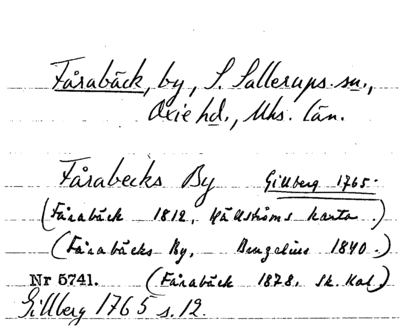 Fårabäck, by, S. Sallerups sn.,
Oxie hd., Mhs. län.
Fårabecks By Gillberg 1765.
(Fårabäck 1812, Hällströms karta.)
(Fårabäcks By, Benzelius 1840.)
Nr 5741. (Fårabäck 1878, Sk. Kal.)
Gillberg 1765 s. 12.